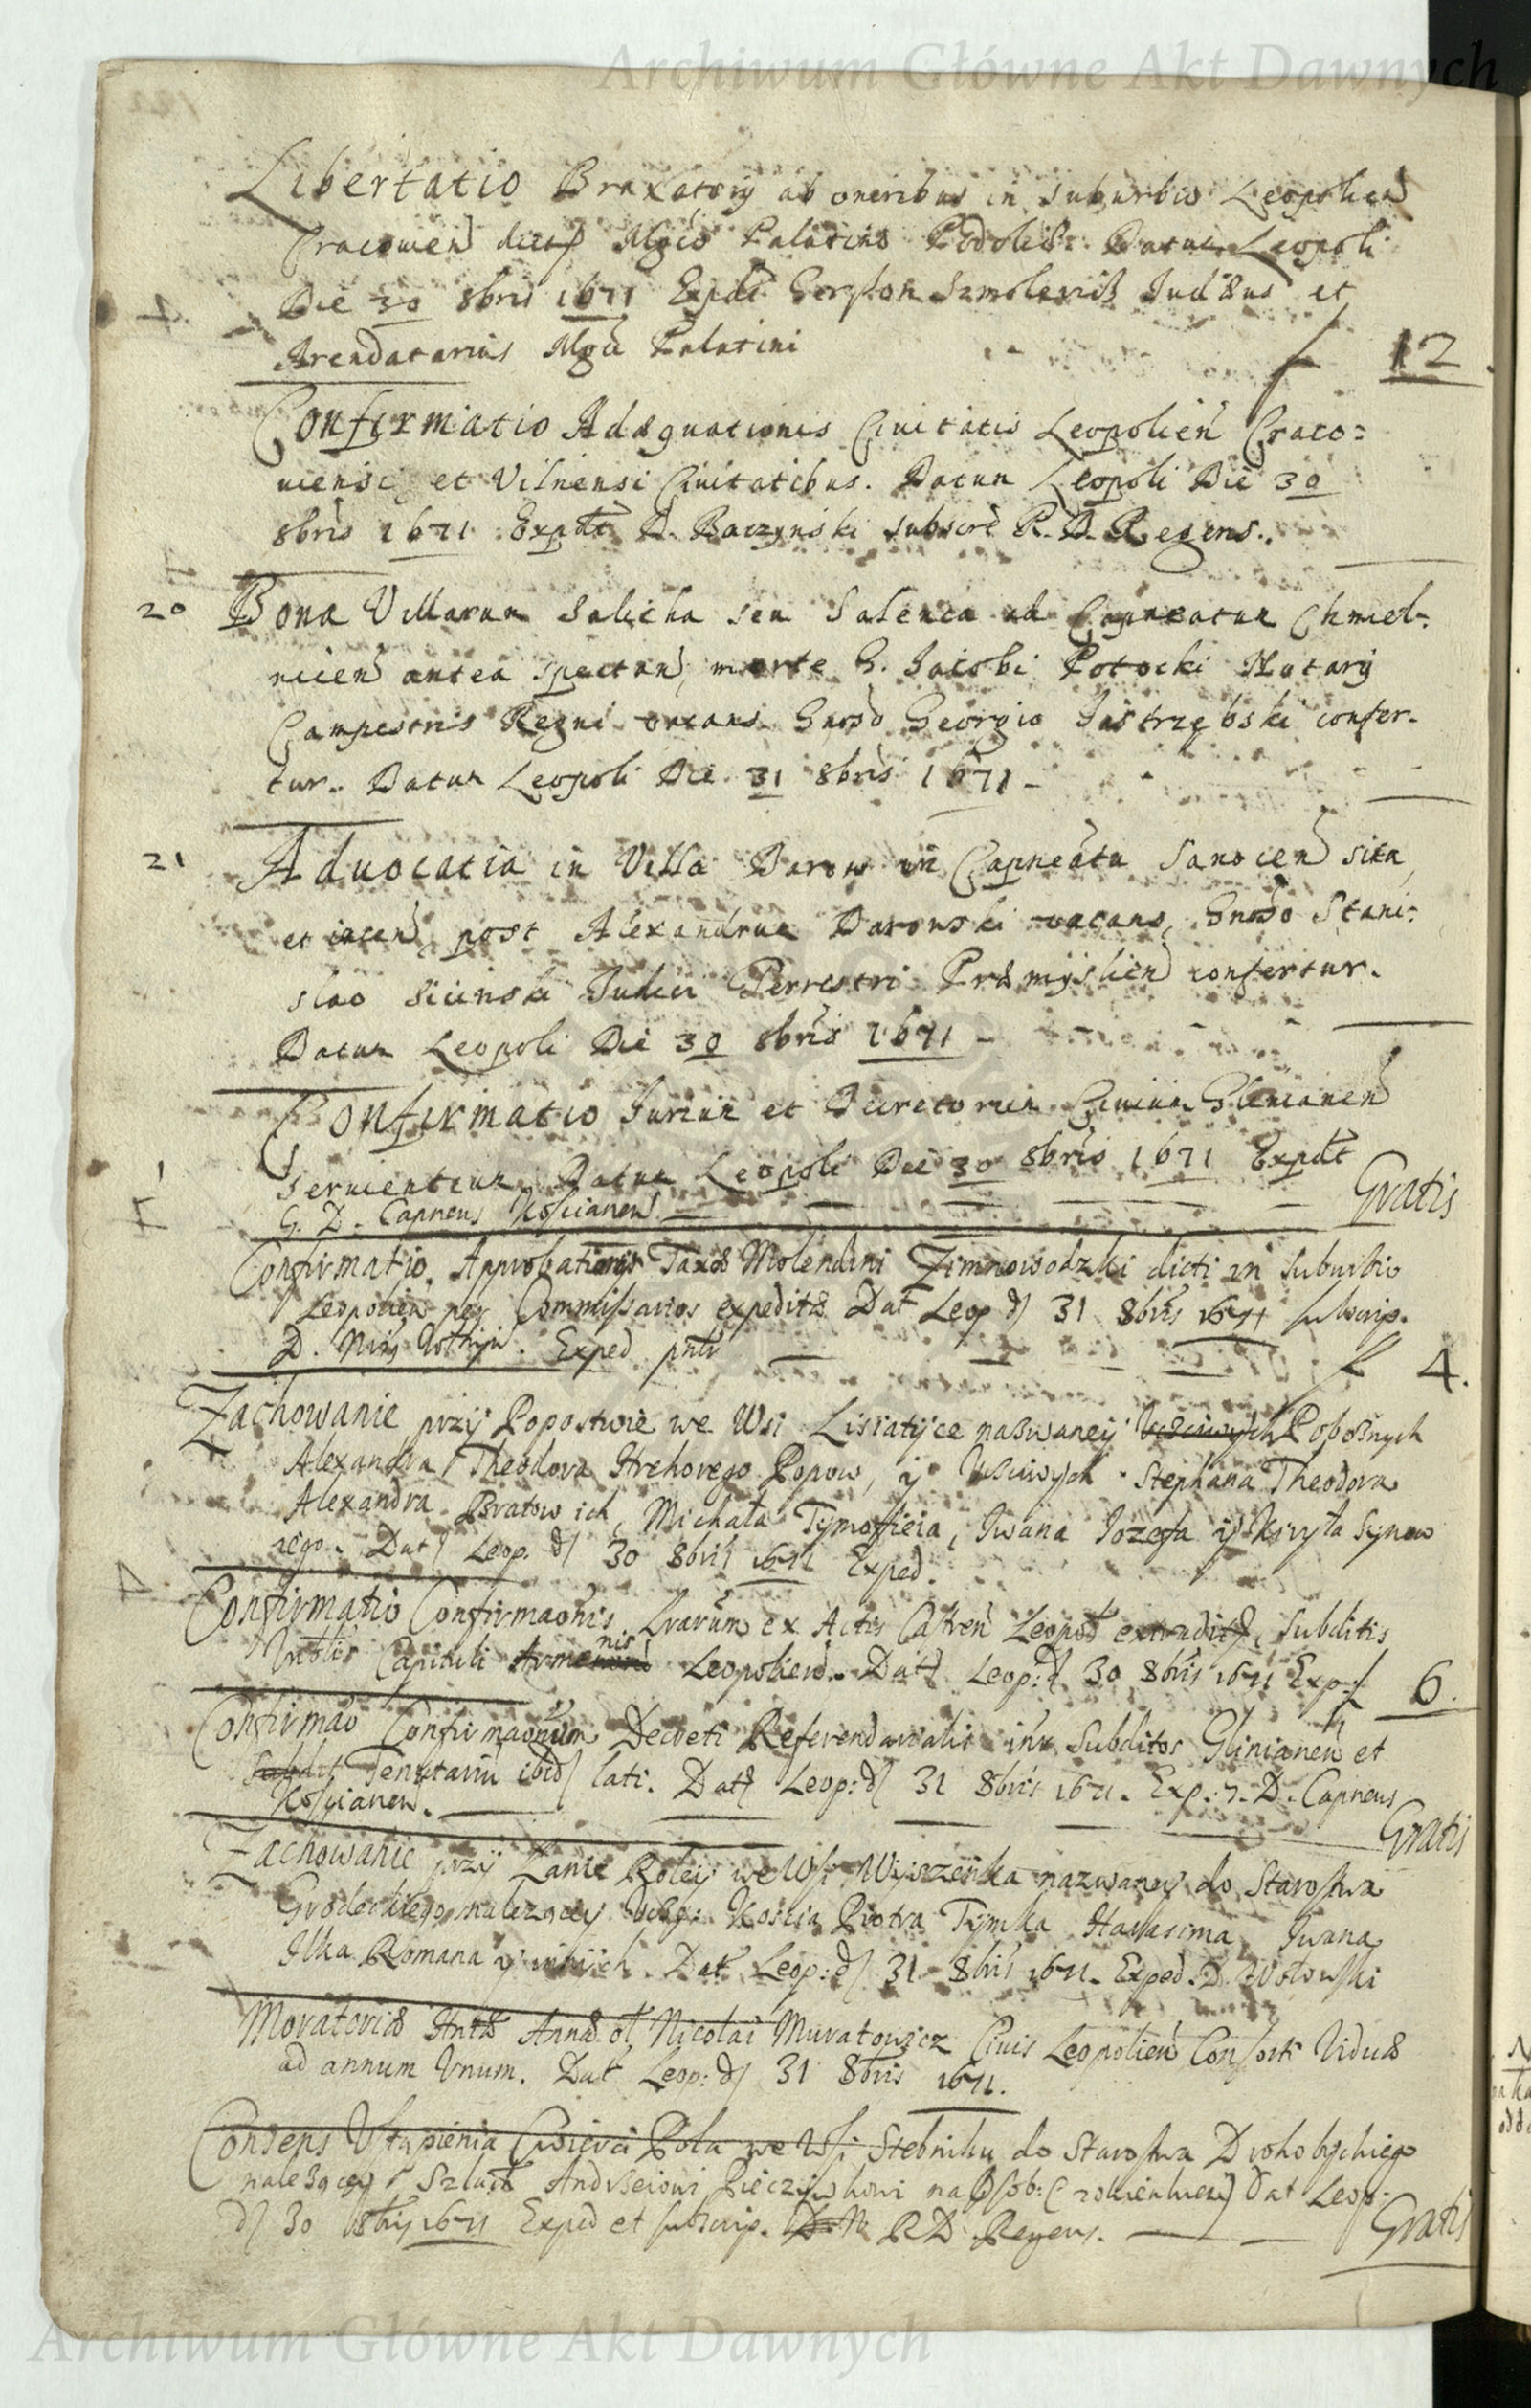 Archiwum Główne Akt Dawnych
Libertatio Braxatorij ab oneribus in suburbio Leopolien
Cracovien dict Mgco Palatino Podoliæ. Datum Leopoli
Die 30 8bris 1671 Expdt Gerszon Szmolewicz Judæus et
Arendatarius Mgci Palatini f 12.
Confirmatio Adæquationis Civitatis Leopolien Craco=
viensi et Vilnensi Civitatibus. Datum Leopoli Die 30
8bris 1671 Expdt D. Baczynski subscrt R. D. Regens.
20 Bona Villarum Salicha seu Salenca ad Capneatum Chmiel=
nicen antea spectan, morte G. Jacobi Potocki Notarij
Campestris Regni vacans Gnoso Georgio Jastrzębski confer-
tur. Datum Leopoli Die 31 8bris 1671 -
21 Advocatia in Villa Darow in Capneatu Sanocen sita,
et iacen, post Alexandrum Darowski vacans, Gnoso Stani=
slao Sicinski Judici Terrestri Præmyslien confertur.
Datum Leopoli Die 30 8bris 1671 -
Confirmatio Jurium et Decretorum Civium Glinianen
Servientium Datum Leopoli Die 30 8bris 1671 Expdt
G. D. Capneus Koscianen Gratis
Confirmatio Approbationis Taxæ Molendini Zimnowodzki dicti in Suburbio
Leopolien per Commissarios expeditæ Dat Leop d 31 8bris 1671 subscrip.
D. Exped f 4.
Zachowanie przy Popostwie we Wsi Lisiatijce nazwaney Uczciwych Pobożnych
Alexandra Theodora Hrehorego Popow, y Uczciwych Stephana Theodora
Alexandra Bratow ich, Michała Tymofieia, Iwana Iozefa y Kiryła Synow
iego. Dat Leop. d 30 8bris 1671 Exped.
Confirmatio Confirmaonis Lrarum ex Actis Castren Leopol extradit, Subditis
Capituli Leopolien. Dat Leop: d 30 8bris 1671 Exp: f 6.
Confirmao Confirmaonum Decreti Referendarialis intr Subditos Glinianen et
Tenutariu ibid lati. Dat Leop: d 31 8bris 1671. Exp.: D. Capneus
Koscianen. Gratis
Zachowanie przy Łanie Roley we Wsi Wyszenka nazwaney do Starostwa
Grodeckiego należącey Kościa Piotra Tymka Harasima Iwana
Ilka Romana y innych. Dat Leop: d 31 8bris 1671. Exped. D. Wołowski
Moratoriæ Annæ ol Nicolai Muratowicz Civis Leopolien Consorti Viduæ
ad annum Unum. Dat Leop: d 31 8bris 1671.
Consens Ustąpienia Cwierci Pola we Wsi Stebniku do Starostwa Drohobyckiego
należącey Szlach Andrzeiowi na Dat Leop:
d 30 8bris 1671 Exped et subscrip. R D Regens. Gratis
Archiwum Główne Akt Dawnych